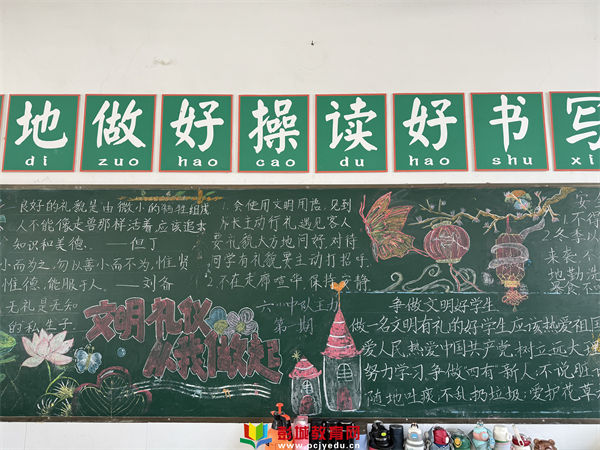 地做好操读好书写
di zuo hao cao du hao shu xi
良好的礼貌是由微小的牺牲组成
人不能像走兽那样活着,应该追求
知识和美德。——但丁
小而为之,勿以善小而不为,惟贤
惟德,能服于人。——刘备
无礼是无知
的私生子.
文明礼仪
从我做起
1.会使用文明用语,见到
师长主动行礼,遇见客人
要礼貌大方地问好,对待
同学有礼貌要主动打招呼.
2.不在走廊喧华,保持安静
六一中队主办
第一期
争做文明好学生
做一名文明有礼的好学生应该热爱祖国
爱人民,热爱中国共产党,树立远大
努力学习,争做四有新人,不说脏话
随地吐痰,不乱扔垃圾;爱护花草
安
1.不得
2.冬季以
来装,不
地勤洗
彭城教育网
www.pcjyedu.cn